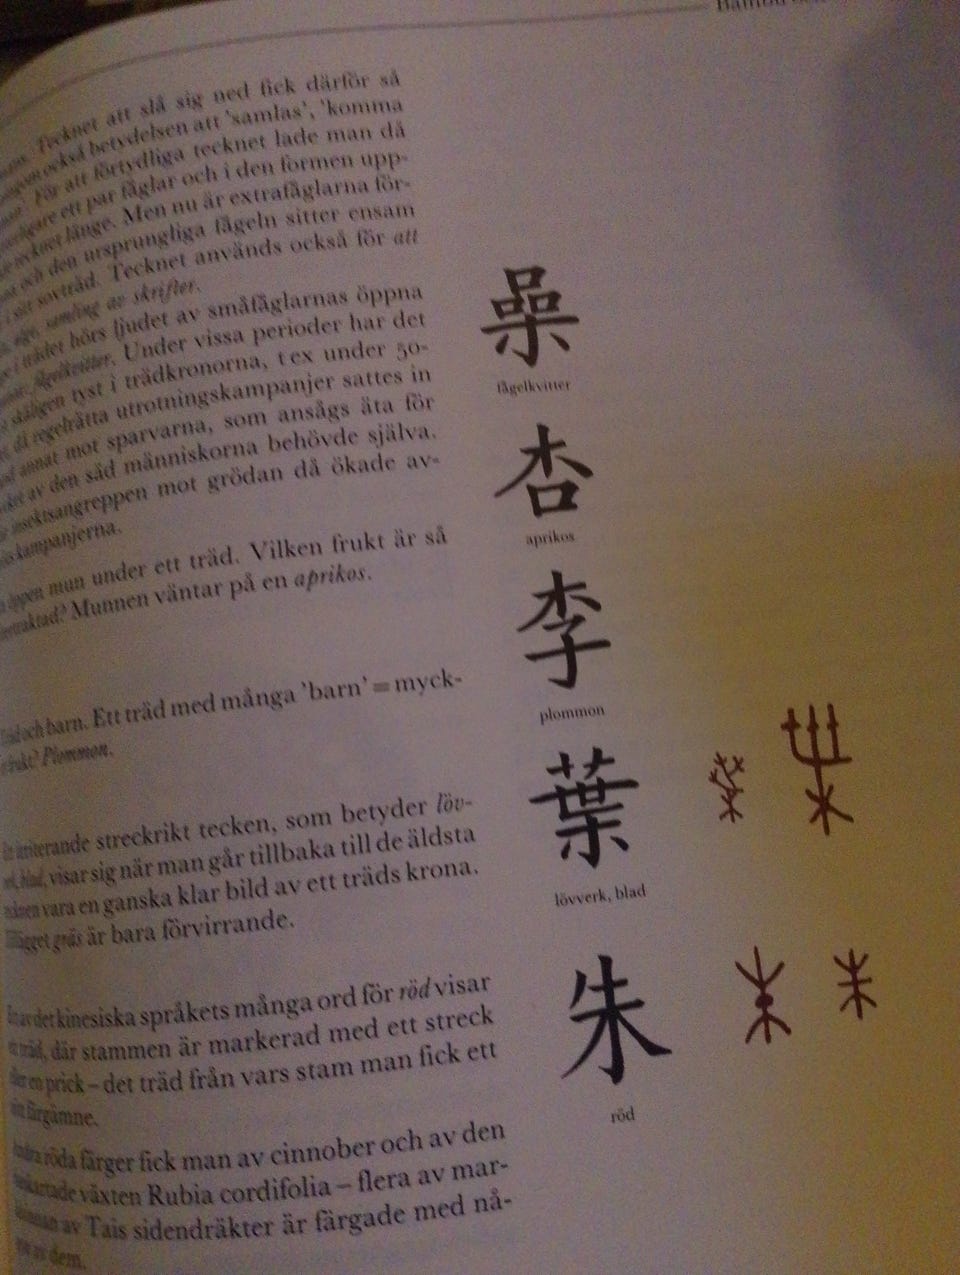 Tecknet att slå sig ned fick därför så
också betydelsen att 'samlas', 'komma
För att förtydliga tecknet lade man då
ett par fåglar och i den formen upp-
tecknet länge. Men nu är extrafåglarna för-
och den ursprungliga fågeln sitter ensam
i sitt sovträd. Tecknet används också för att
samling av skrifter.
i trädet hörs ljudet av småfåglarnas öppna
fågelkvitter. Under vissa perioder har det
tyst i trädkronorna, t ex under 50-
då regelrätta utrotningskampanjer sattes in
annat mot sparvarna, som ansågs äta för
av den säd människorna behövde själva.
insektsangreppen mot grödan då ökade av-
kampanjerna.
öppen mun under ett träd. Vilken frukt är så
Munnen väntar på en aprikos.
och barn. Ett träd med många 'barn' = myck-
frukt? Plommon.
irriterande streckrikt tecken, som betyder löv-
blad, visar sig när man går tillbaka till de äldsta
vara en ganska klar bild av ett träds krona.
gräs är bara förvirrande.
av det kinesiska språkets många ord för röd visar
ett träd, där stammen är markerad med ett streck
eller en prick – det träd från vars stam man fick ett
färgämne.
Andra röda färger fick man av cinnober och av den
växten Rubia cordifolia – flera av mar-
av Tais sidendräkter är färgade med nå-
av dem.
喿
fågelkvitter
杏
aprikos
李
plommon
葉
lövverk, blad
朱
röd